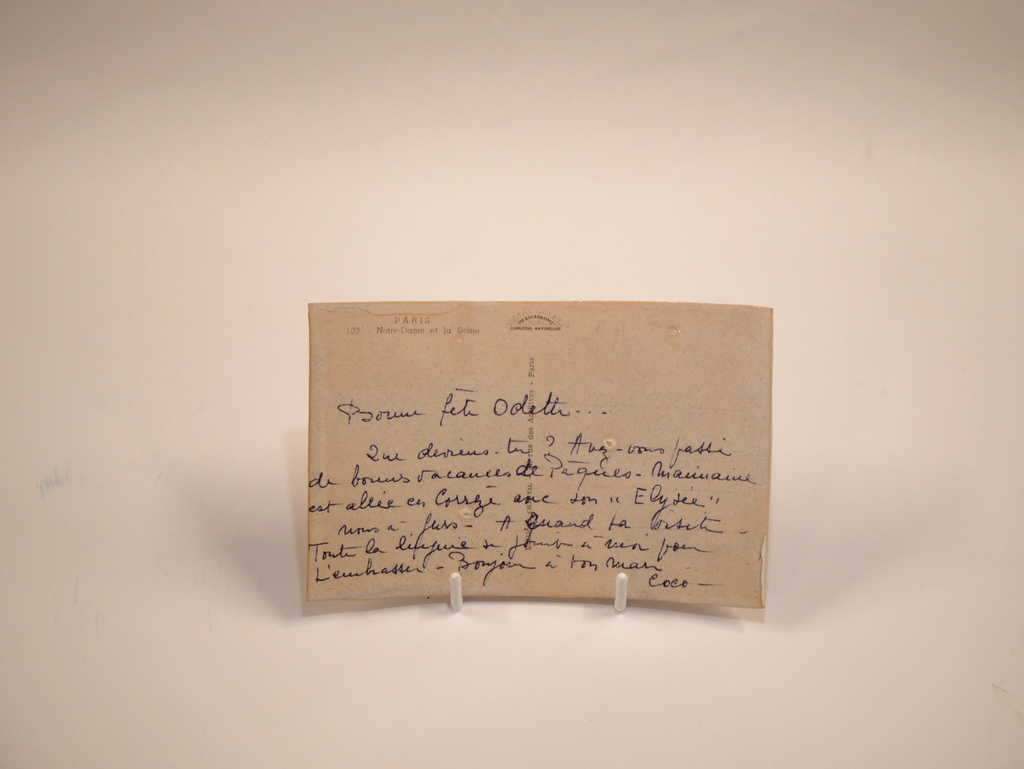 PARIS
102. Notre-Dame et la Seine
COULEURS NATURELLES
des - Paris
Bonne fête Odette...
Que deviens-tu ? Avez-vous passé
de bonnes vacances de Pâques - Mamaine
est allée en Corrèze avec son " Elysée "
nous à - A Quand ta visite -
Toute la lingerie se joint à moi pour
t'embrasser - Bonjour à ton mari
Coco -